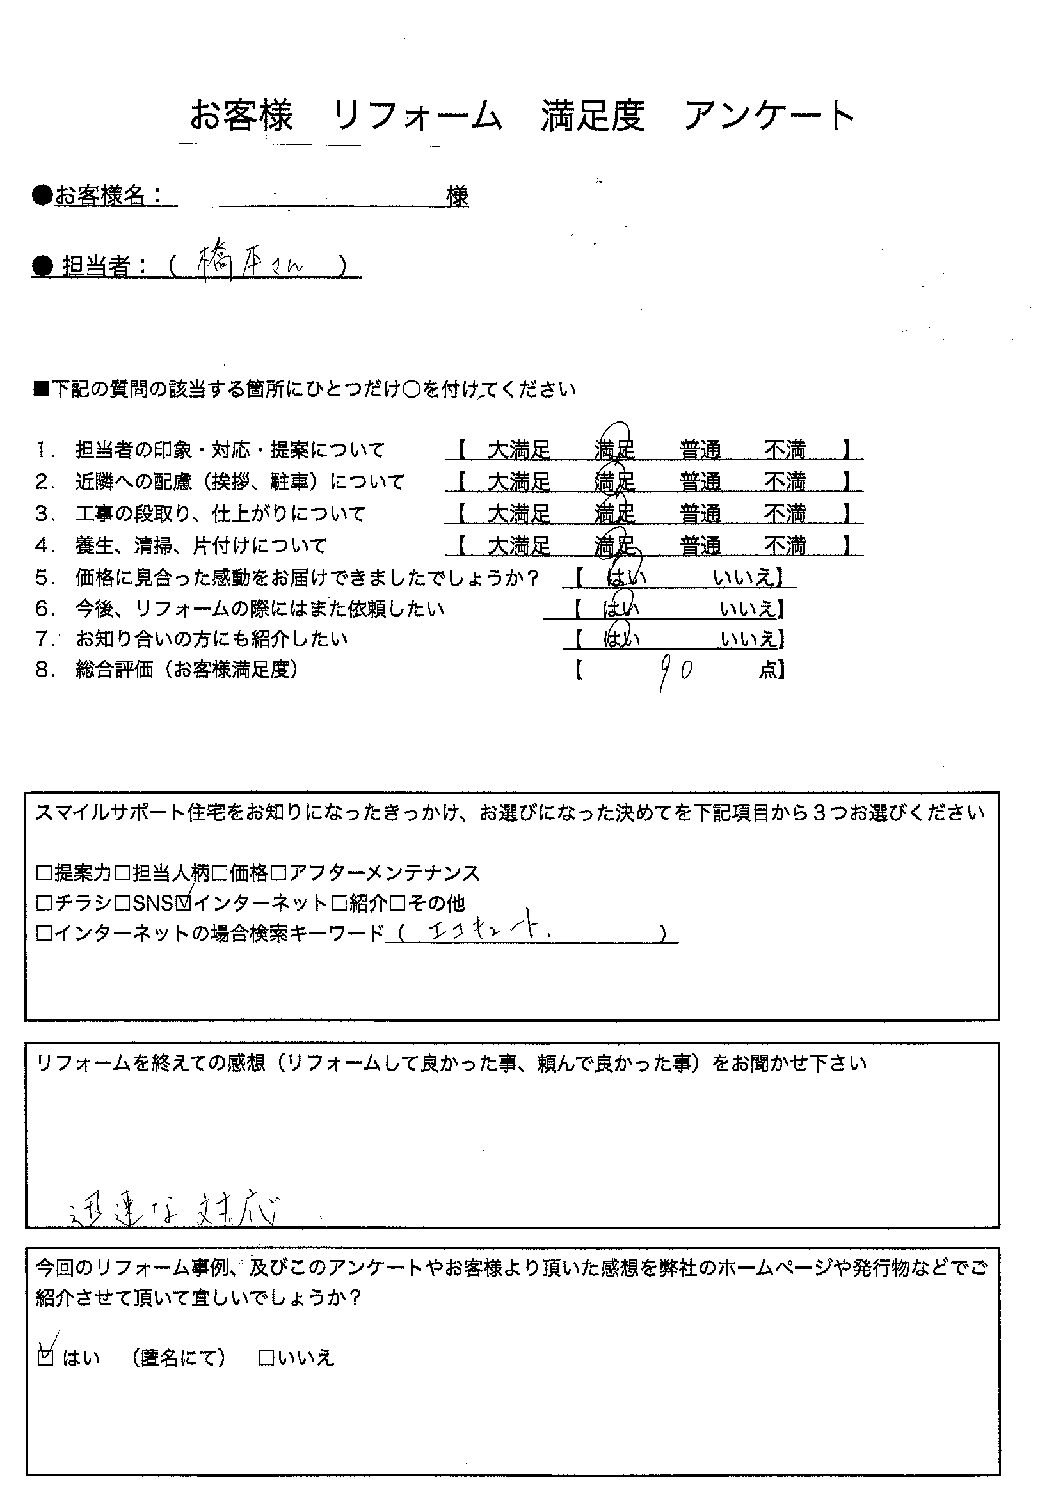 お客様　リフォーム　満足度　アンケート
●お客様名：　　　　　　様
●担当者：（ 橋本さん ）
■下記の質問の該当する箇所にひとつだけ〇を付けてください
1. 担当者の印象・対応・提案について 【 大満足　満足　普通　不満 】
2. 近隣への配慮（挨拶、駐車）について 【 大満足　満足　普通　不満 】
3. 工事の段取り、仕上がりについて 【 大満足　満足　普通　不満 】
4. 養生、清掃、片付けについて 【 大満足　満足　普通　不満 】
5. 価格に見合った感動をお届けできましたでしょうか？ 【 はい　いいえ】
6. 今後、リフォームの際にはまた依頼したい 【 はい　いいえ】
7. お知り合いの方にも紹介したい 【 はい　いいえ】
8. 総合評価（お客様満足度） 【 90 点】
スマイルサポート住宅をお知りになったきっかけ、お選びになった決めてを下記項目から３つお選びください
□提案力□担当人柄□価格□アフターメンテナンス
□チラシ□SNS☑インターネット□紹介□その他
□インターネットの場合検索キーワード（ エコキュート. ）
リフォームを終えての感想（リフォームして良かった事、頼んで良かった事）をお聞かせ下さい
迅速な対応
今回のリフォーム事例、及びこのアンケートやお客様より頂いた感想を弊社のホームページや発行物などでご
紹介させて頂いて宜しいでしょうか？
☑はい　（匿名にて）　□いいえ